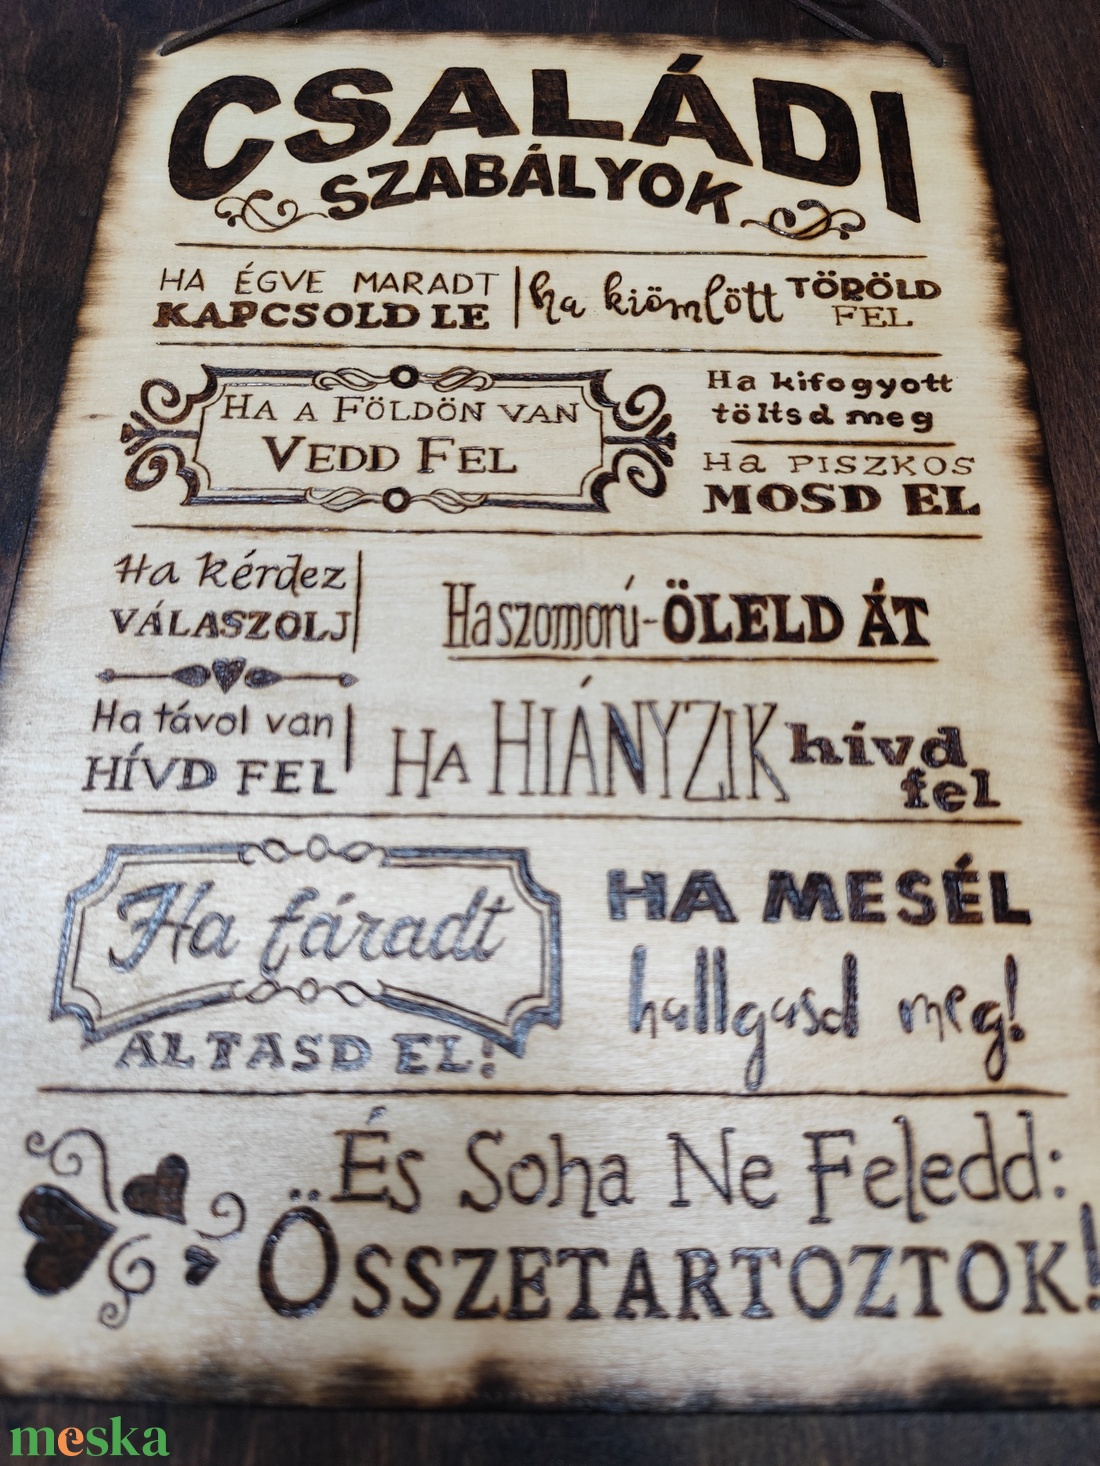 CSALÁDI
SZABÁLYOK
HA ÉGVE MARADT
KAPCSOLD LE
ha kiömlött TÖRÖLD
FEL
HA A FÖLDÖN VAN
VEDD FEL
Ha kifogyott
töltsd meg
Ha PISZKOS
MOSD EL
Ha kérdez
VÁLASZOLJ
Ha szomorú-ÖLELD ÁT
Ha távol van
HÍVD FEL
HA HIÁNYZIK hívd
fel
Ha fáradt
ALTASD EL!
HA MESÉL
hallgasd meg!
És Soha Ne Feledd:
ÖSSZETARTOZTOK!
meska